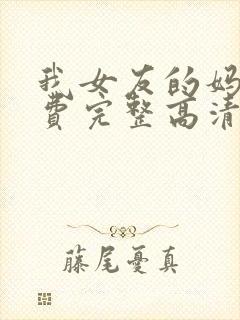 我女友的妈
费完整高清
藤尾憂真